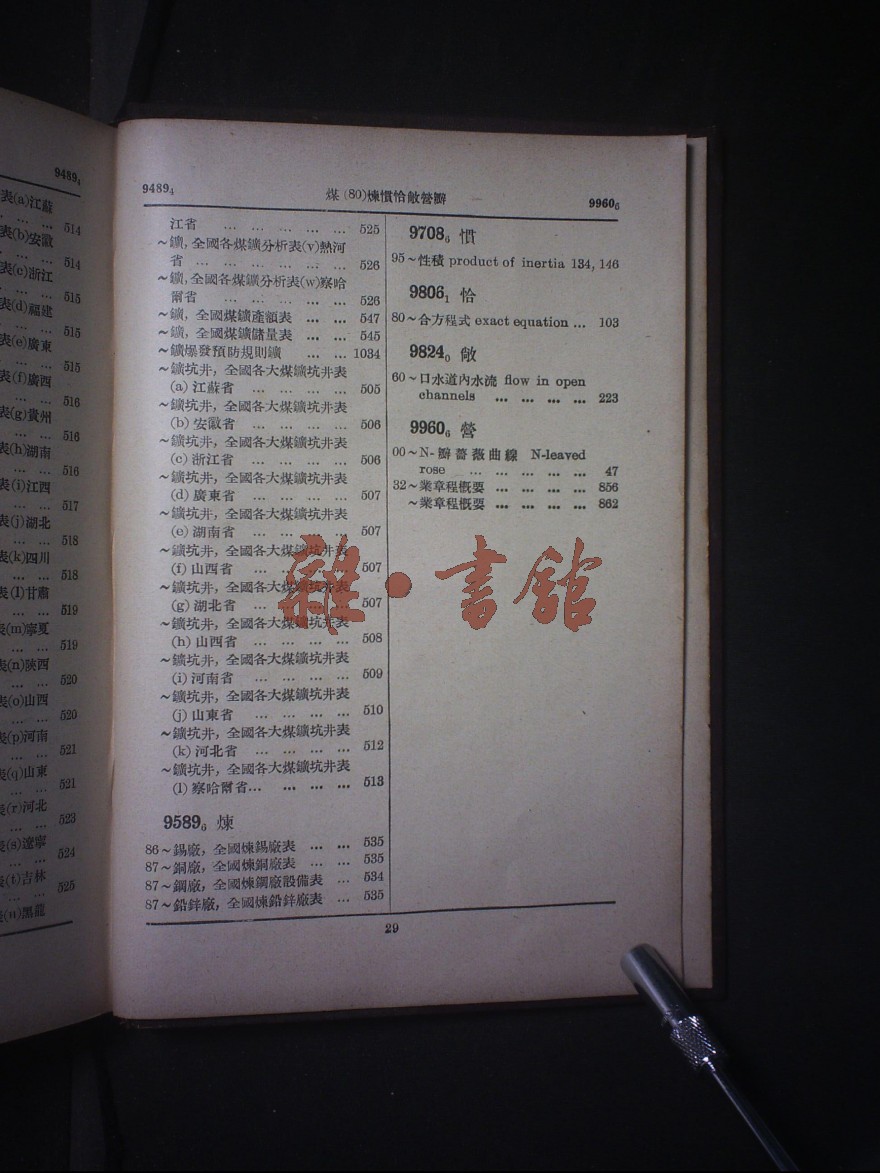 9489₄
表(a)江蘇
… … … 514
表(b)安徽
… … … 514
表(c)浙江
… … … 515
表(d)福建
… … … 515
表(e)廣東
… … … 515
表(f)廣西
… … … 516
表(g)貴州
… … … 516
表(h)湖南
… … … 516
表(i)江西
… … … 517
表(j)湖北
… … … 518
表(k)四川
… … … 518
表(l)甘肅
… … … 519
表(m)寧夏
… … … 519
表(n)陝西
… … … 520
表(o)山西
… … … 520
表(p)河南
… … … 521
表(q)山東
… … … 521
表(r)河北
… … … 523
表(s)遼寧
… … … 524
表(t)吉林
… … … 525
表(u)黑龍
9489₄ 煤(80)煉慣恰敞營瓣 9960₆
江省 … … … … … 525
~鑛，全國各煤鑛分析表(v)熱河
省 … … … … … … 526
~鑛，全國各煤鑛分析表(w)察哈
爾省 … … … … … 526
~鑛，全國煤鑛產額表 … … 547
~鑛，全國煤鑛儲量表 … … 545
~鑛爆發預防規則鑛 … … 1034
~鑛坑井，全國各大煤鑛坑井表
(a) 江蘇省 … … … … 505
~鑛坑井，全國各大煤鑛坑井表
(b) 安徽省 … … … … 506
~鑛坑井，全國各大煤鑛坑井表
(c) 浙江省 … … … … 506
~鑛坑井，全國各大煤鑛坑井表
(d) 廣東省 … … … … 507
~鑛坑井，全國各大煤鑛坑井表
(e) 湖南省 … … … … 507
~鑛坑井，全國各大煤鑛坑井表
(f) 山西省 … … … … 507
~鑛坑井，全國各大煤鑛坑井表
(g) 湖北省 … … … … 507
~鑛坑井，全國各大煤鑛坑井表
(h) 山西省 … … … … 508
~鑛坑井，全國各大煤鑛坑井表
(i) 河南省 … … … … 509
~鑛坑井，全國各大煤鑛坑井表
(j) 山東省 … … … … 510
~鑛坑井，全國各大煤鑛坑井表
(k) 河北省 … … … … 512
~鑛坑井，全國各大煤鑛坑井表
(l) 察哈爾省… … … … 513
9589₆ 煉
86~錫廠，全國煉錫廠表 … … 535
87~銅廠，全國煉銅廠表 … … 535
87~鋼廠，全國煉鋼廠設備表 … 534
87~鉛鋅廠，全國煉鉛鋅廠表 … 535
9708₆ 慣
95~性積 product of inertia 134, 146
9806₁ 恰
80~合方程式 exact equation … 103
9824₀ 敞
60~口水道內水流 flow in open
channels … … … … 223
9960₆ 營
00~N-瓣薔薇曲線 N-leaved
rose … … … … … 47
32~業章程概要 … … … … 856
~業章程概要 … … … … 862
29
雜·書館